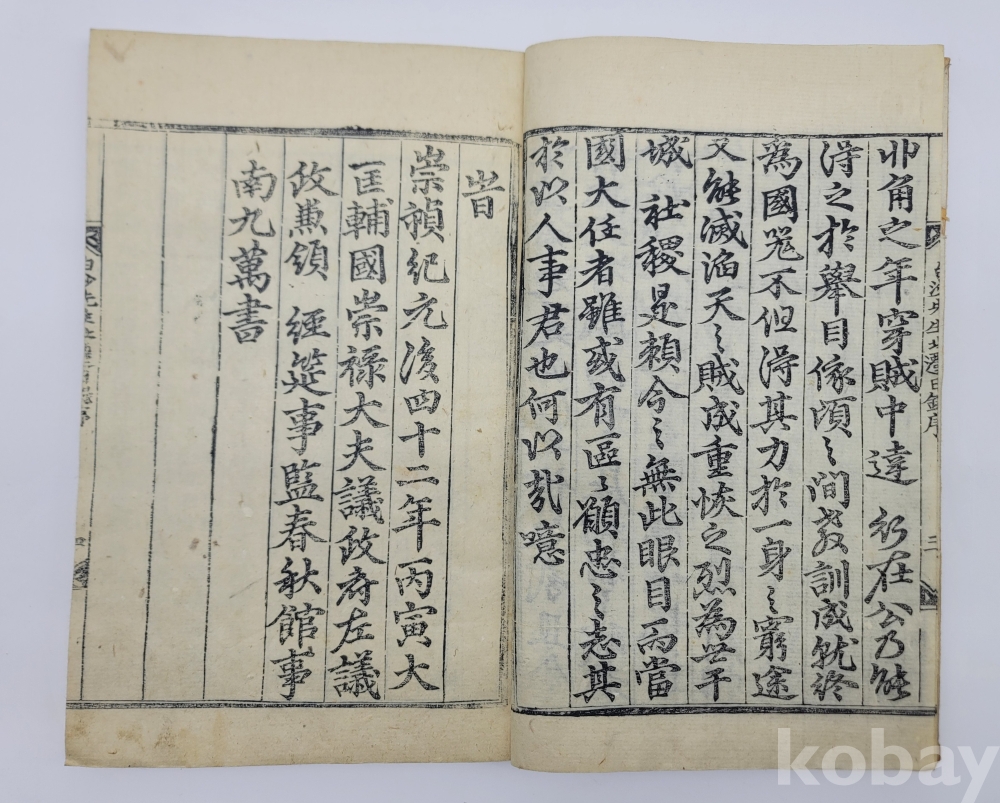 丱角之年穿賊中達 行在公乃能
得之於舉目傢頃〻間教訓成就終
爲國器不但得其力於一身〻窮途
又能滅滔天〻賊成重恢之烈為世干
城 社稷是賴今〻無此眼目而當
國大任者雖或有區〻願忠〻志其
於以人事君也何以哉噫
旹
崇禎紀元後四十二年丙寅大
匡輔國崇祿大夫議政府左議
政兼領 經筵事監春秋館事
南九萬書
白沙先生北遷日錄序
三
kobay